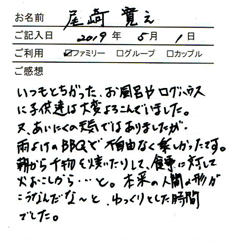 お名前 尾崎 寛之
ご記入日 2019年 5月 1日
ご利用 ☑ファミリー □グループ □カップル
ご感想
いつもとちがった、お風呂やログハウス
に子供達は大変よろこんでいました。
又、あいにくの天気ではありましたが、
雨よけのBBQで不自由なく楽しかったです。
朝から干物を焼いたりして、食事に対して
火おこしから…と。本来の人間の形が
こうなんだな〜と、ゆっくりとした時間
でした。